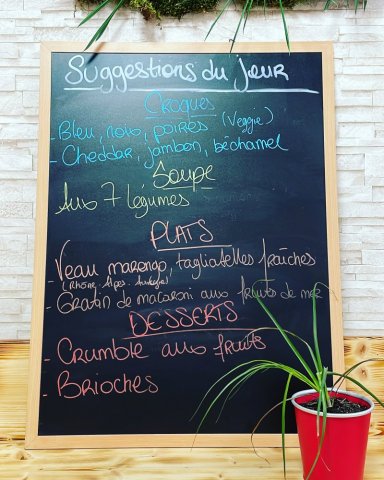 Suggestions du jour
Croques
- Bleu, noix, poires (Veggie)
- Cheddar, jambon, béchamel
Soupe
Aux 7 légumes
PLATS
- Veau marengo, tagliatelles fraîches
(Rhône-Alpes-Auvergne)
- Gratin de macaroni aux fruits de mer
DESSERTS
- Crumble aux fruits
- Brioches